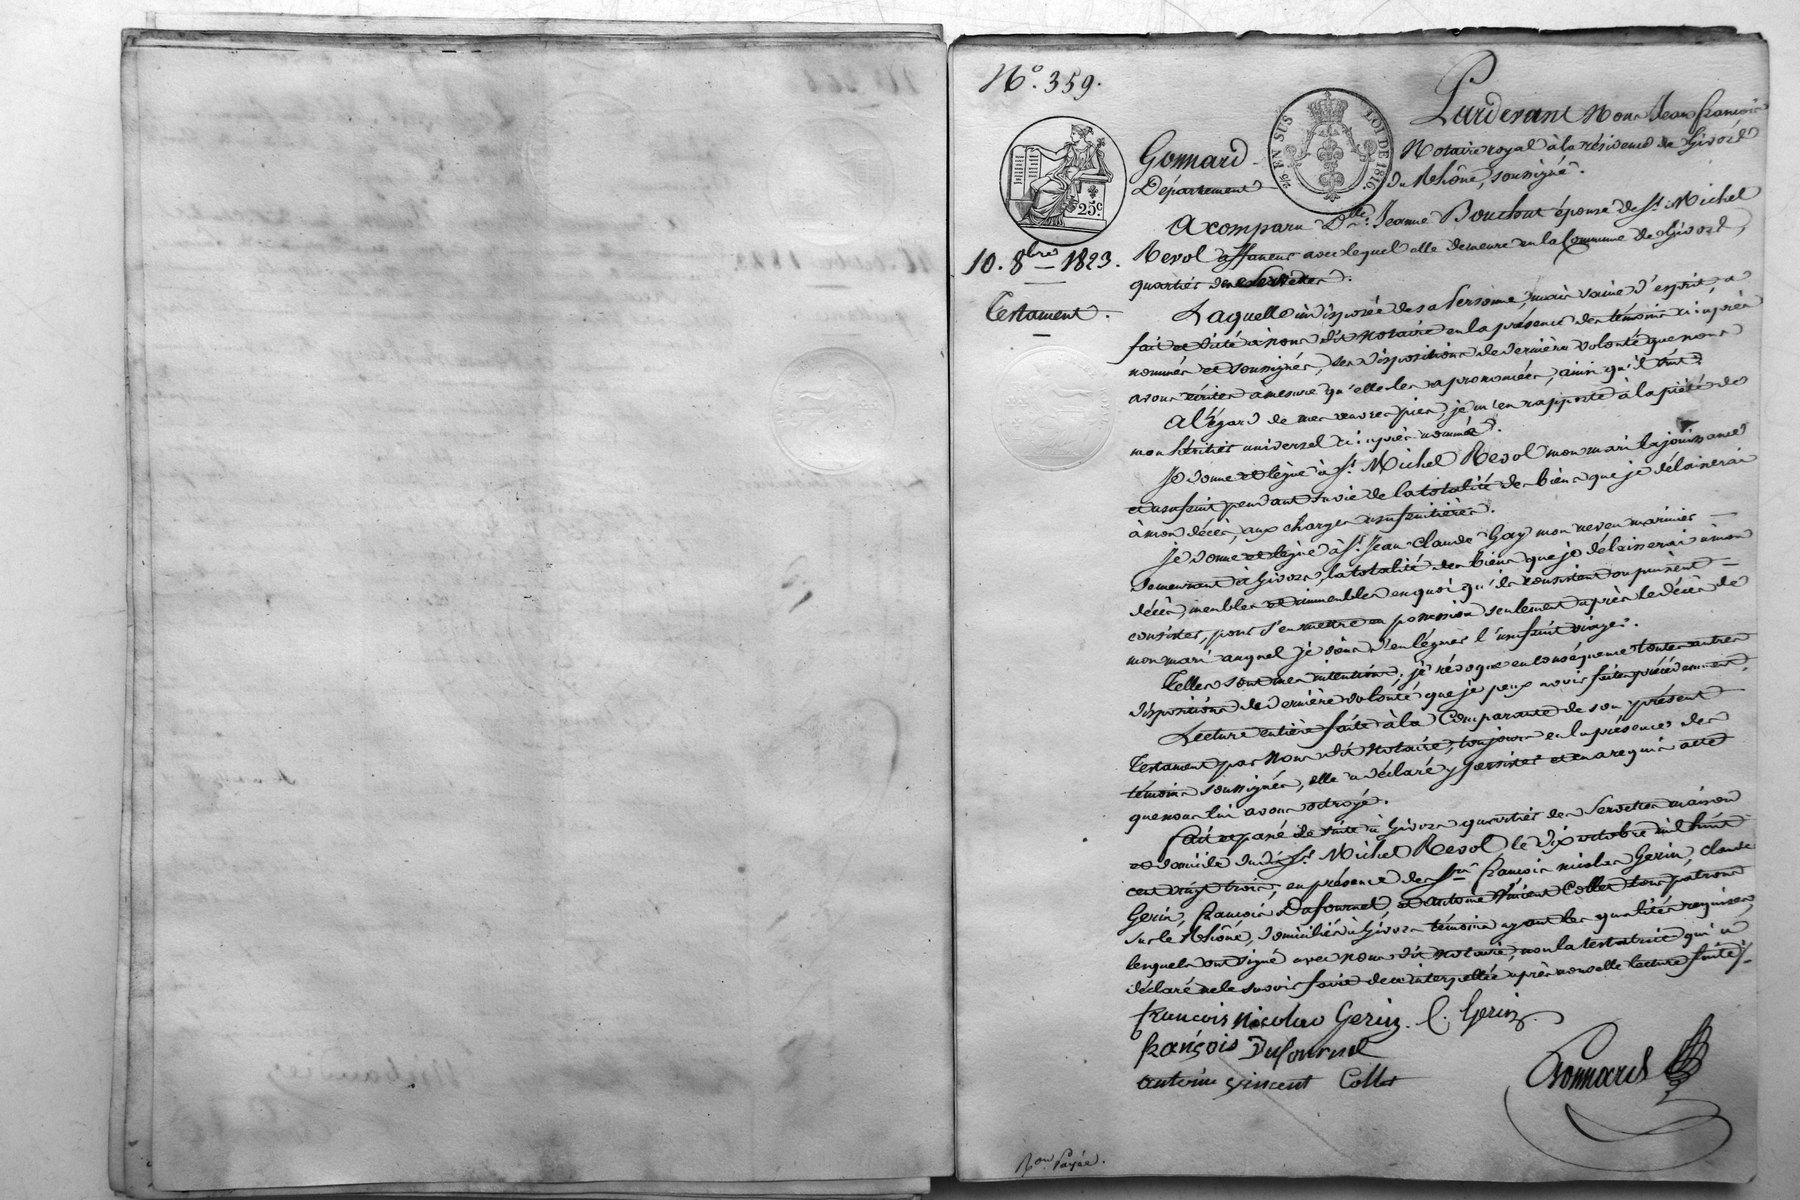 N.o 359.
Pardevant Nous Jean François
Gonnard Notaire royal à la résidence de Givors
Département du Rhône, soussigné.
25 EN SUS LOI DE 1816
25c
A comparu D.lle Jeanne Bouchut épouse de S.r Michel
10. 8bre 1823.
Revol affaneur avec lequel elle demeure en la Commune de Givors,
quartier des Servettes.
Testament.
Laquelle indisposée de sa Personne, mais saine d'esprit, a
fait et dicté à nous dit Notaire en la présence des témoins ci-après
nommés et soussignés, ses dispositions de dernière volonté que nous
avons écrites à mesure qu'elle les a prononcées, ainsi qu'il suit:
A l'égard de mes œuvres pies, je m'en rapporte à la piété de
mon héritier universel ci-après nommé.
Je donne et lègue à S.r Michel Revol mon mari la jouissance
et usufruit pendant sa vie de la totalité des biens que je délaisserai
à mon décès, aux charges usufruitières.
Je donne et lègue à S.r Jean Claude Gay mon neveu marinier
demeurant à Givors, la totalité des biens que je délaisserai à mon
décès, meubles et immeubles en quoi qu'ils consistent ou puissent
consister, pour s'en mettre en possession seulement après le décès de
mon mari auquel je viens d'en léguer l'usufruit viager.
Telles sont mes intentions; je révoque en conséquence toutes autres
dispositions de dernière volonté que je peux avoir faites précédemment.
Lecture entière faite à la Comparante de son présent
Testament par Nous dit Notaire, toujours en la présence des
témoins soussignés, elle a déclaré y persister et en a requis acte
que nous lui avons octroyé.
Fait et passé de suite à Givors quartier des Servettes maison
et domicile dudit S.r Michel Revol, le dix octobre mil huit
cent vingt trois; en présence des S.rs François nicolas Gerin, Claude
Gerin, François Dufournel, et Antoine Vincent Collet tous patrons
sur le Rhône, domiciliés à Givors témoins ayant les qualités requises,
lesquels ont signé avec nous dit Notaire, non la testatrice qui a
déclaré ne le savoir faire de ce interpellée après nouvelle lecture faite./.
françois nicolas Gerin. C. Gerin
françois Dufournel
antoine vincent Collet
Gonnard